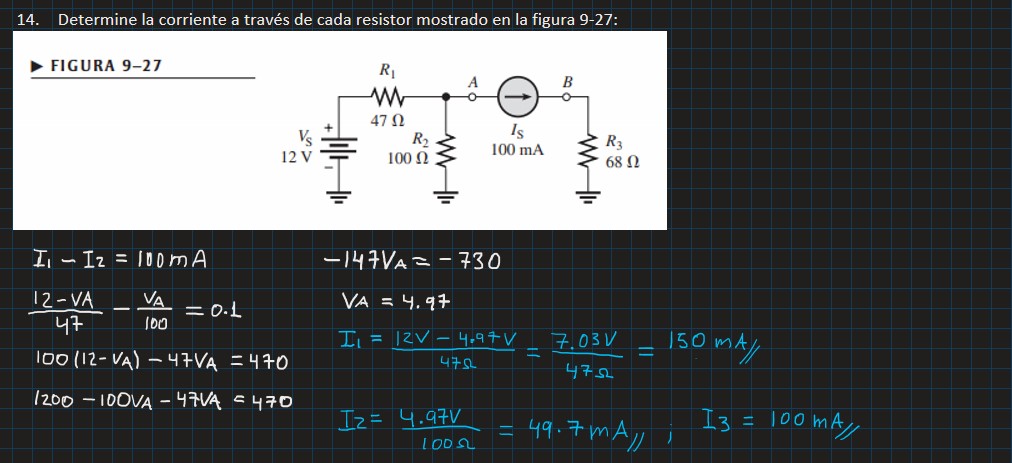 14. Determine la corriente a través de cada resistor mostrado en la figura 9-27:
▶ FIGURA 9–27
R₁
47 Ω
A
B
V_S
12 V
+
–
R₂
100 Ω
I_S
100 mA
R₃
68 Ω
I₁ - I₂ = 100mA
(12-VA)/47 - VA/100 = 0.1
100(12-VA) - 47VA = 470
1200 - 100VA - 47VA = 470
-147VA = -730
VA = 4.97
I₁ = (12V - 4.97V)/47Ω = 7.03V/47Ω = 150 mA //
I₂ = 4.97V/100Ω = 49.7mA // ; I3 = 100mA //